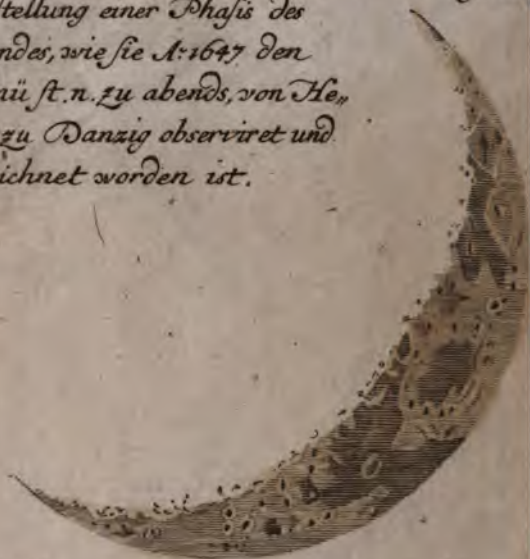 tellung einer Phasis des
ndes, wie sie A: 1647 den
nü st. n. zu abends, von He„
zu Danzig observiret und
ichnet worden ist.